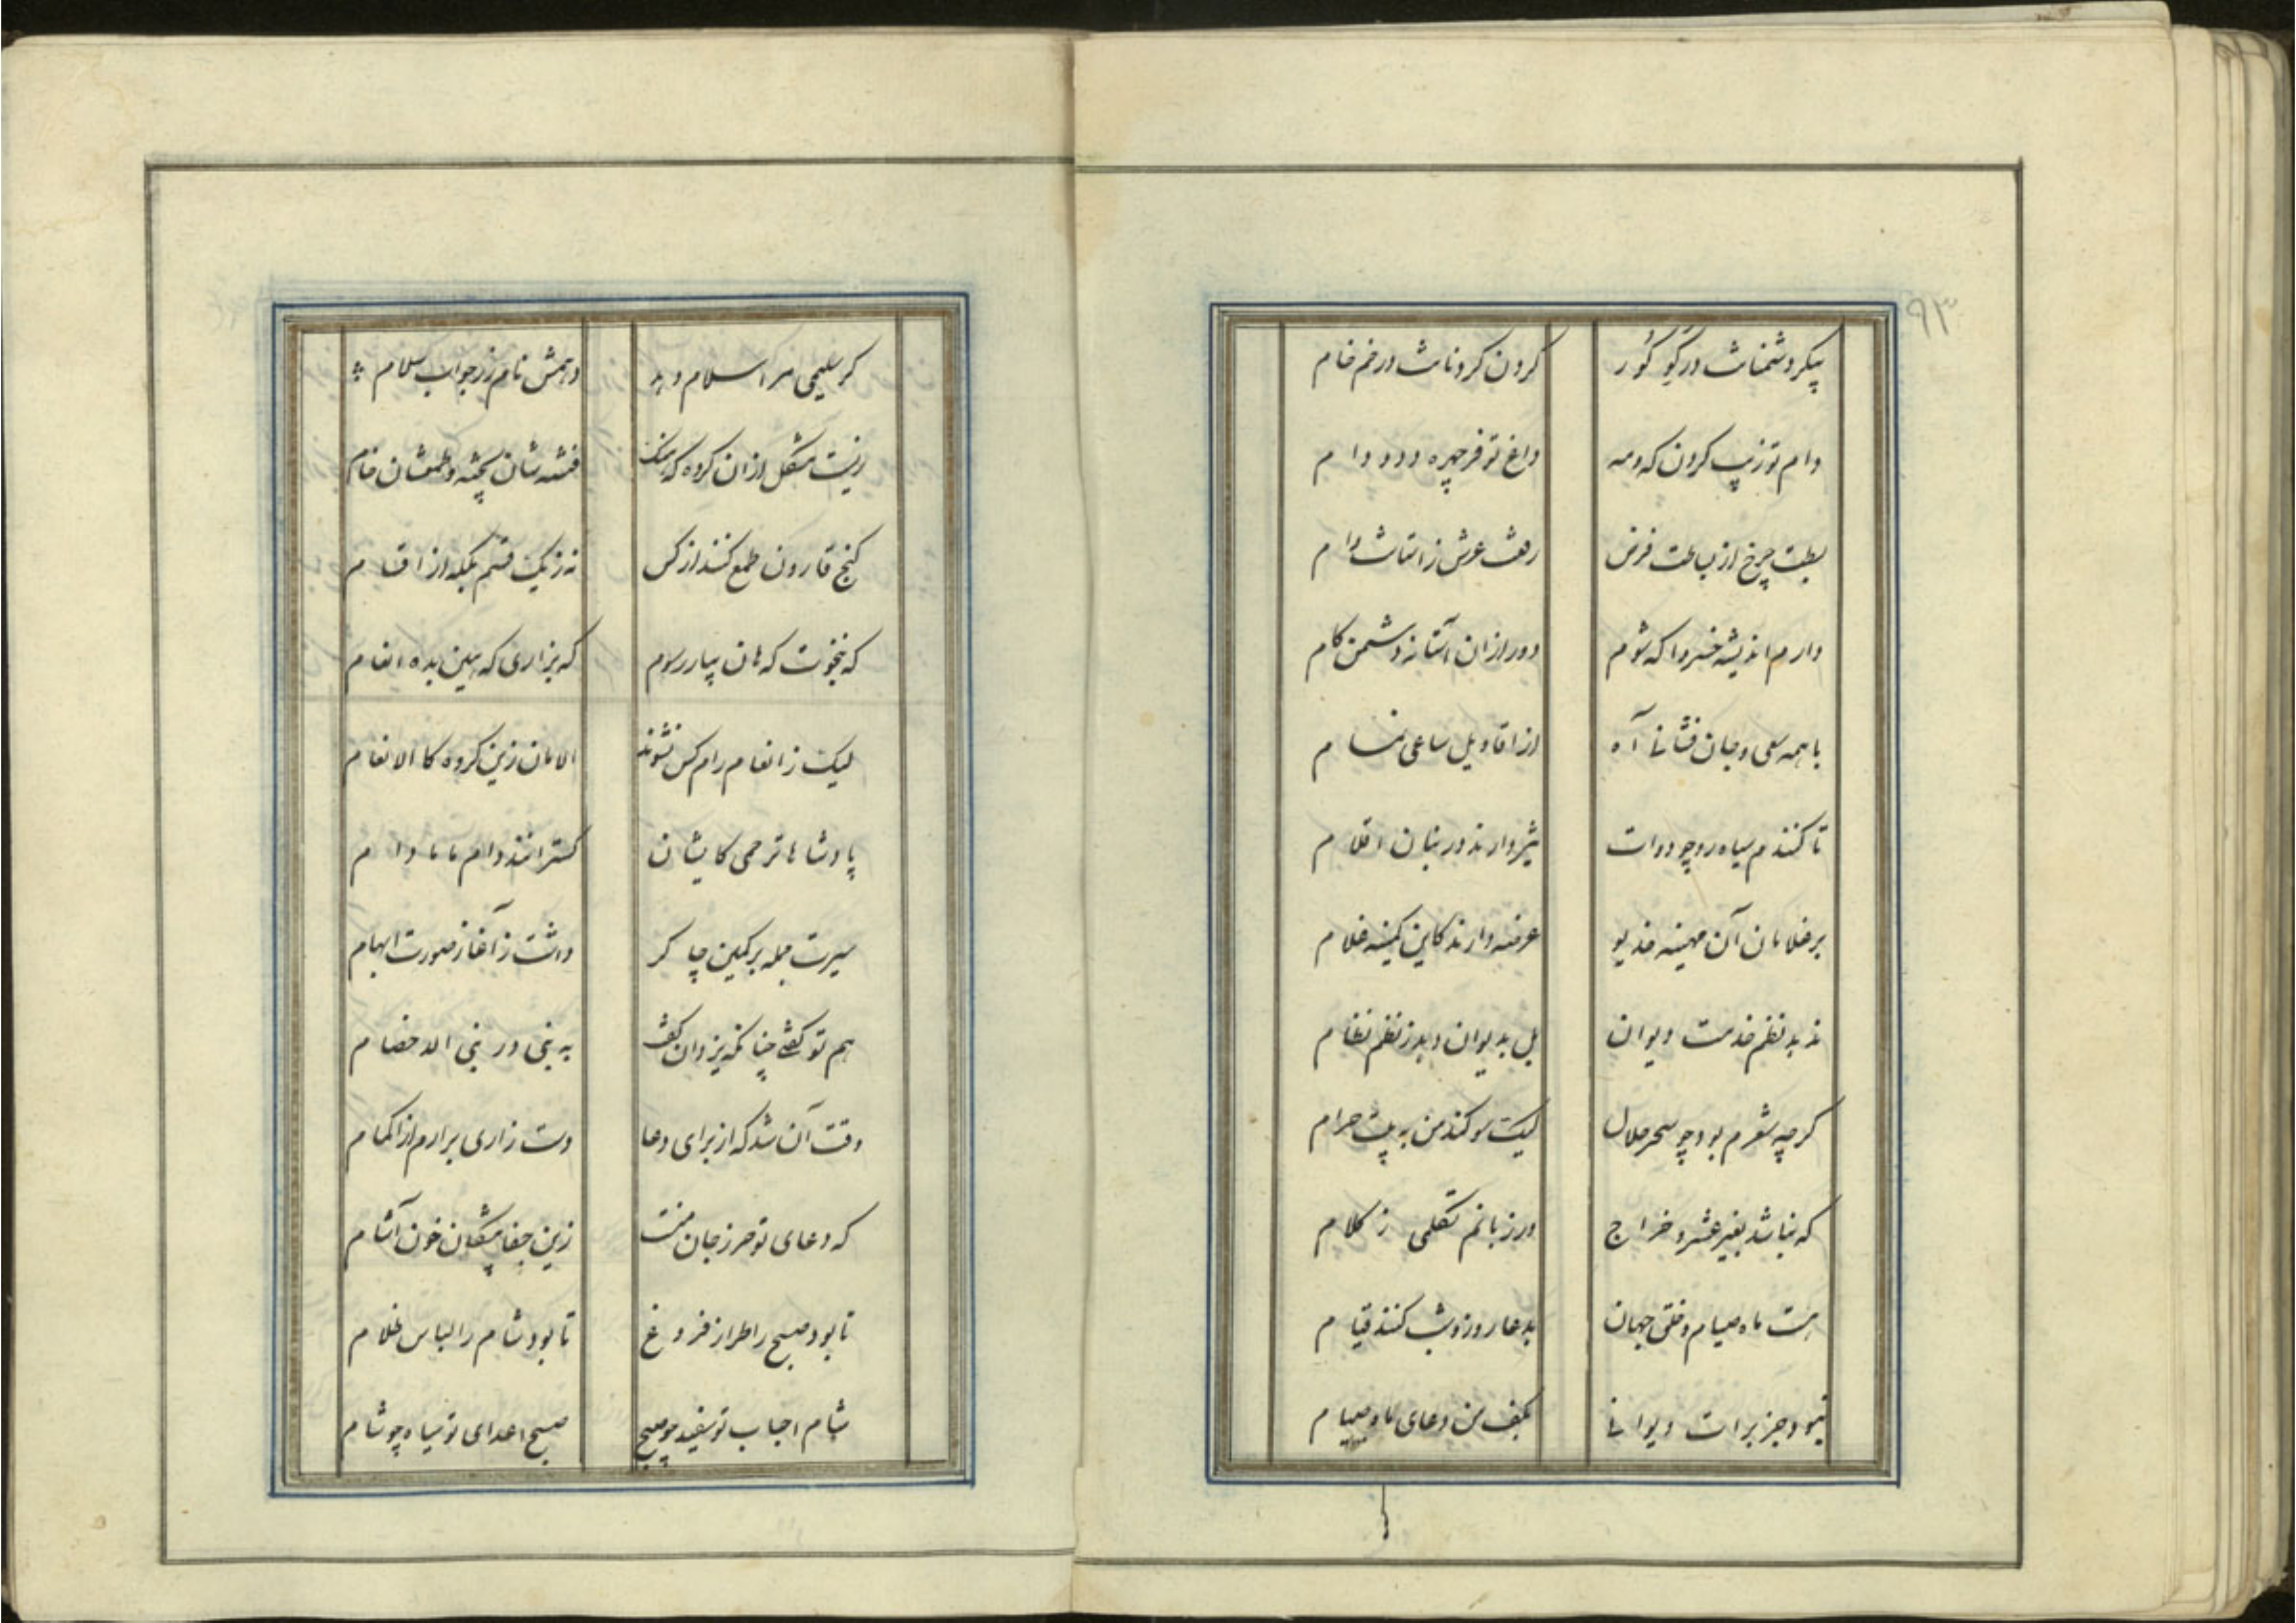 ۹۳
پیکر دشمنانت در کو کور
کردن کردنانت در خم خام
دام تو زیب کردن که ومه
داغ تو فر چهره دد و دام
بطت چرخ از بساطت فرض
رفعت عرش ز استانت وام
دارم اندیشه خسروا که شوم
دور ازان آستانه دشمن کام
با همه سعی و جان فشانی آه
از اقاویل ساعی نمام
تا کنندم سیاه رو چو دوات
تیز دارند در بنان اقلام
بر غلامان آن مهینه خدیو
عرضه دارند کاین کمینه غلام
ندید نظم خدمت دیوان
بل بدیوان دهد ز نظم نظام
کرچه شعرم بود چو سحر حلال
لیک سوکند من به بیت حرام
که نباشد بغیر عشر و خراج
در زبانم تکلمی ز کلام
هست ماه صیام و خلق جهان
بدعا روز و شب کنند قیام
نبود جز برات دیوانی
بکف من دعای ماه صیام
کر سلیمی مر اسلام دهد
دهمش نام زر جواب سلام
زنیت مشکل ازان کروه که هست
فتنه شان پخته و طمعشان خام
کنج قارون طمع کنند از کس
نه ز یک قسم بلکه از اقسام
که بنخوت که هان بیار رسوم
که بزاری که هین بده انعام
لیک ز انعام رام کس نشوند
الامان زین کروه کالانعام
پادشاها ترحمی کایشان
کسترانند دام ما مادام
سیرت جمله بر کمین چاکر
داشت ز آغاز صورت ابهام
هم تو کفتی چنانکه یزدان کفت
به نبی در نبی الد خصام
وقت آن شد که از برای دعا
دست زاری برارم از اکمام
که دعای تو حرز جان منست
زین جفا پیشکان خون آشام
تا بود صبح را طراز فروغ
تا بود شام را لباس ظلام
شام احباب تو سفید چو صبح
صبح اعدای تو سیاه چو شام